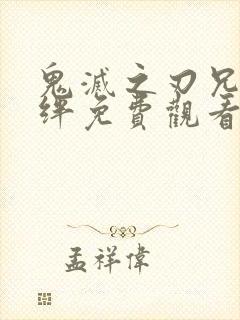 鬼滅之刃兄
絆免費觀看
孟祥偉